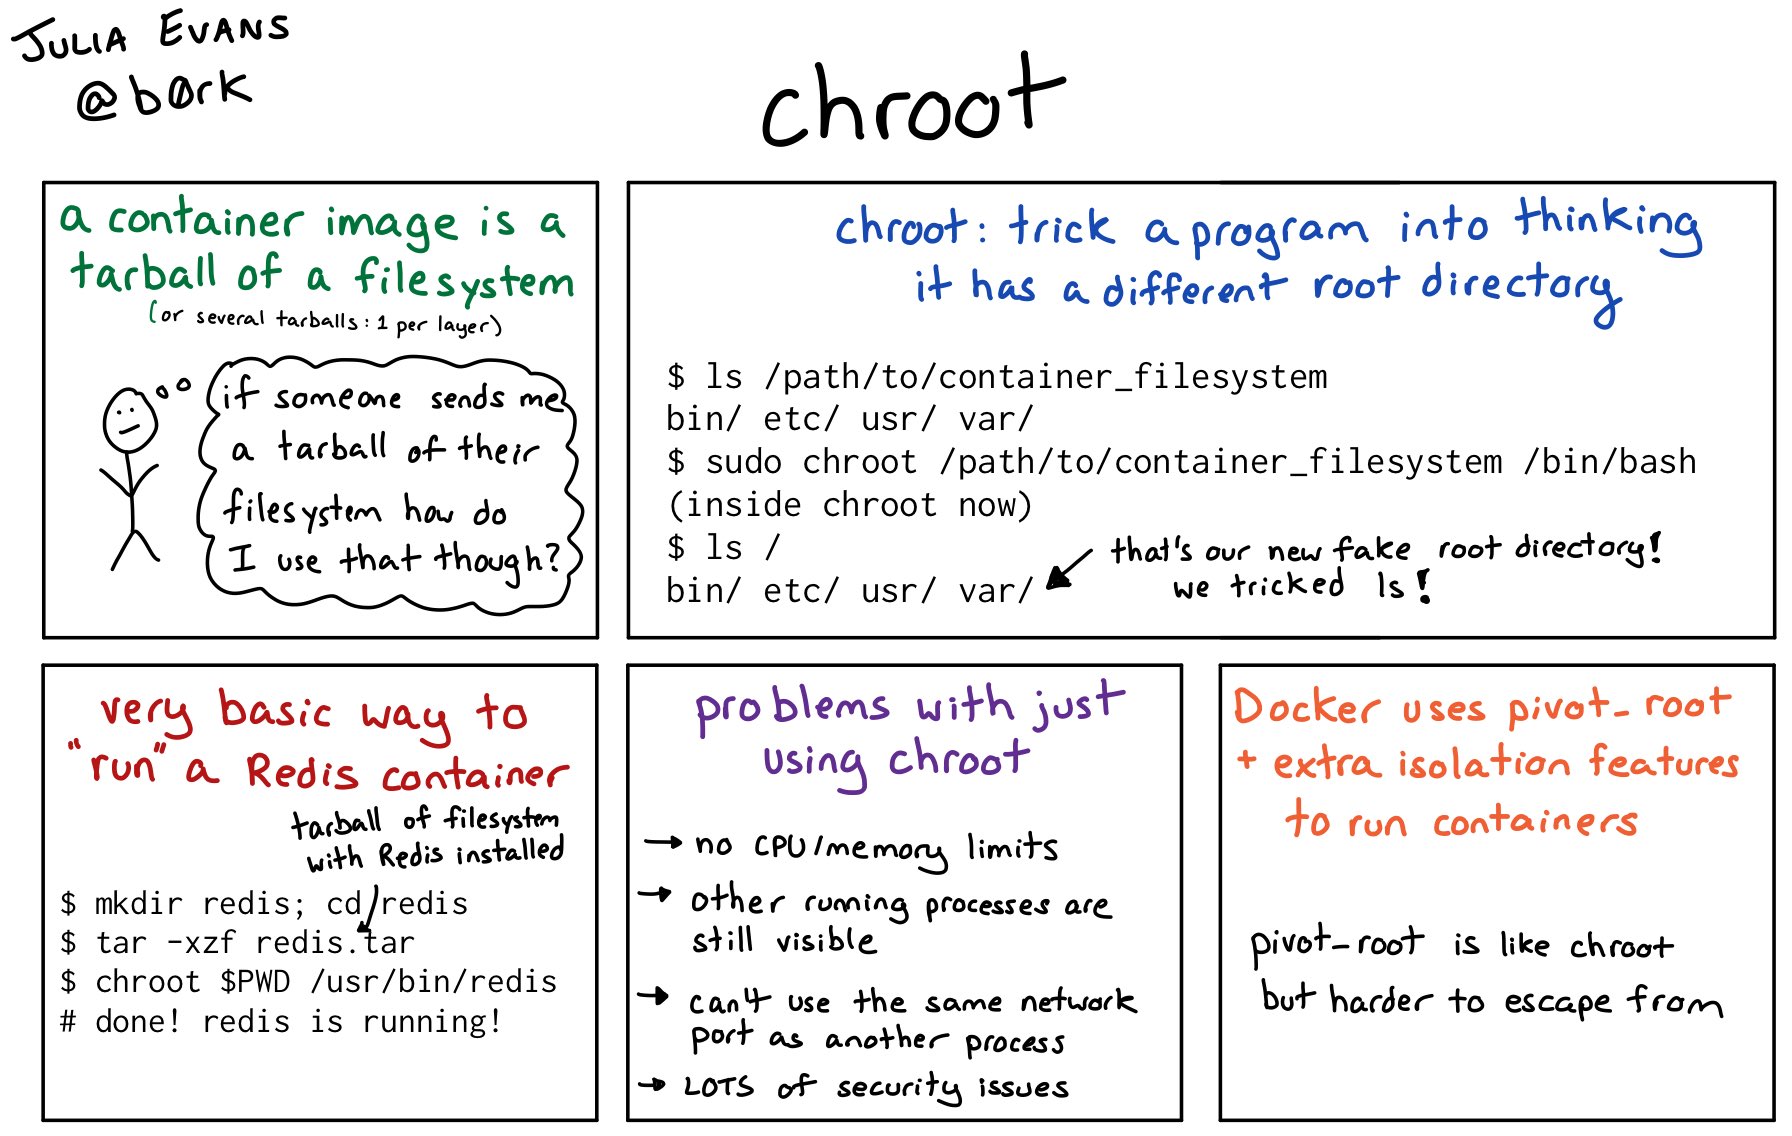 JULIA EVANS
@b0rk
chroot
a container image is a
tarball of a filesystem
(or several tarballs: 1 per layer)
if someone sends me
a tarball of their
filesystem how do
I use that though?
chroot: trick a program into thinking
it has a different root directory
$ ls /path/to/container_filesystem
bin/ etc/ usr/ var/
$ sudo chroot /path/to/container_filesystem /bin/bash
(inside chroot now)
$ ls /
bin/ etc/ usr/ var/
that's our new fake root directory!
we tricked ls!
very basic way to
"run" a Redis container
tarball of filesystem
with Redis installed
$ mkdir redis; cd redis
$ tar -xzf redis.tar
$ chroot $PWD /usr/bin/redis
# done! redis is running!
problems with just
using chroot
→ no CPU/memory limits
→ other running processes are
still visible
→ can't use the same network
port as another process
→ LOTS of security issues
Docker uses pivot_root
+ extra isolation features
to run containers
pivot_root is like chroot
but harder to escape from